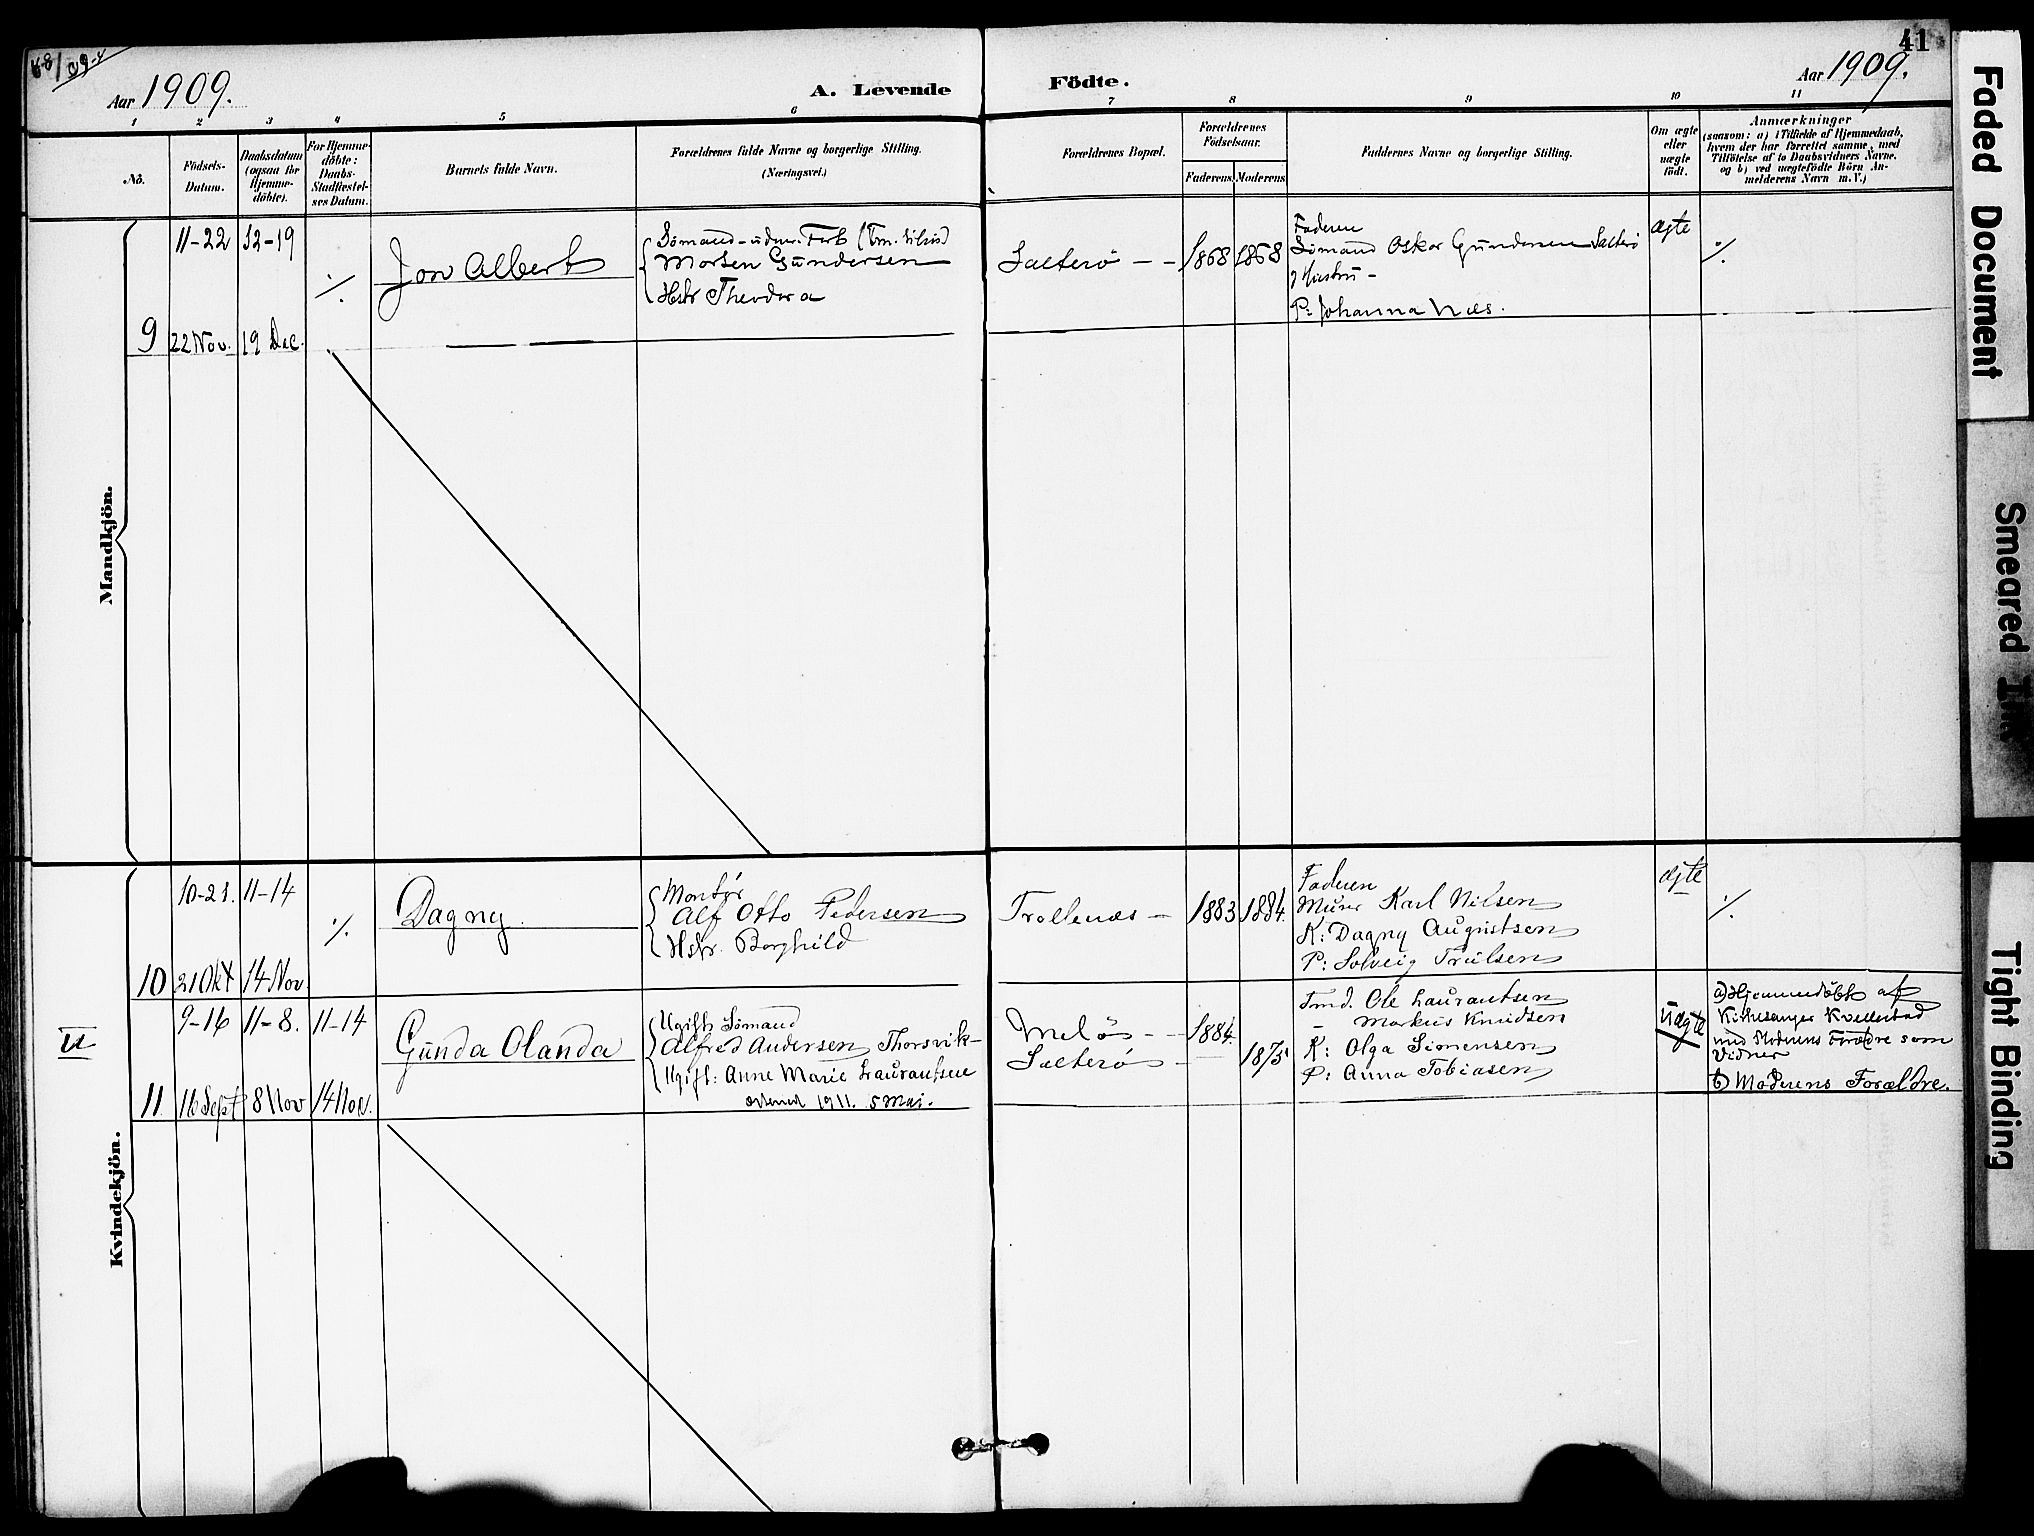 Aar 1909.
A. Levende Födte.
41
Aar 1909.
1 2 3 4 5 6 7 8 9 10 11
No.
Födsels-
Datum.
Daabsdatum
(ogsaa for
Hjemme-
döbte).
For Hjemme-
döbte:
Daabs-
Stadfæstel-
ses Datum.
Barnets fulde Navn.
Forældrenes fulde Navne og borgerlige Stilling.
(Næringsvei.)
Forældrenes Bopæl.
Forældrenes
Födselsaar.
Faderens. Moderens.
Faddernes Navne og borgerlige Stilling.
Om ægte
eller
uægte
födt.
Anmærkninger
(saasom: a) i Tilfælde af Hjemmedaab,
hvem der har forrettet samme, med
Tilföielse af to Daabsvidners Navne,
og b) ved uægtefödte Börn An-
melderens Navn m. V.)
Mandkjön.
9
11-22
22 Nov.
12-19
19 Dec.
./.
Jon Albert
Sømand
Morten Gundersen
Hstr Theodora
Salterö
1868 1868
Faderen
Sømand Oskar Gundersen Salterö
Hustru
P: Johanna Næs.
ægte
./.
Kvindekjön.
10
10-21.
21 Okt
11-14
14 Nov
./.
Dagny.
Montør
Alf Otto Pedersen
Hstr. Borghild
Trollenæs
1883 1884.
Faderen
Murer Karl Nilsen
K: Dagny Augustsen
P: Solveig Trulsen
ægte
./.
U
11.
9-16
16 Sept
11-8.
8 Nov
11-14
14 Nov.
Gunda Olanda
Ugift Sømand
Alfred Andersen Thorsvik
Ugift: Anne Marie Laurantsen
1911. 5 Mai.
Melös
Salterö
1884.
1875
Tmd. Ole Laurantsen
Markus Knudsen
K: Olga Simensen
P: Anna Tobiasen
uægte
a) Hjemmedöbt af
Kirkesanger Kvellestad
med Moderens Forældre som
Vidner
b) Moderens Forældre.
Faded Document
Smeared Ink
Tight Binding